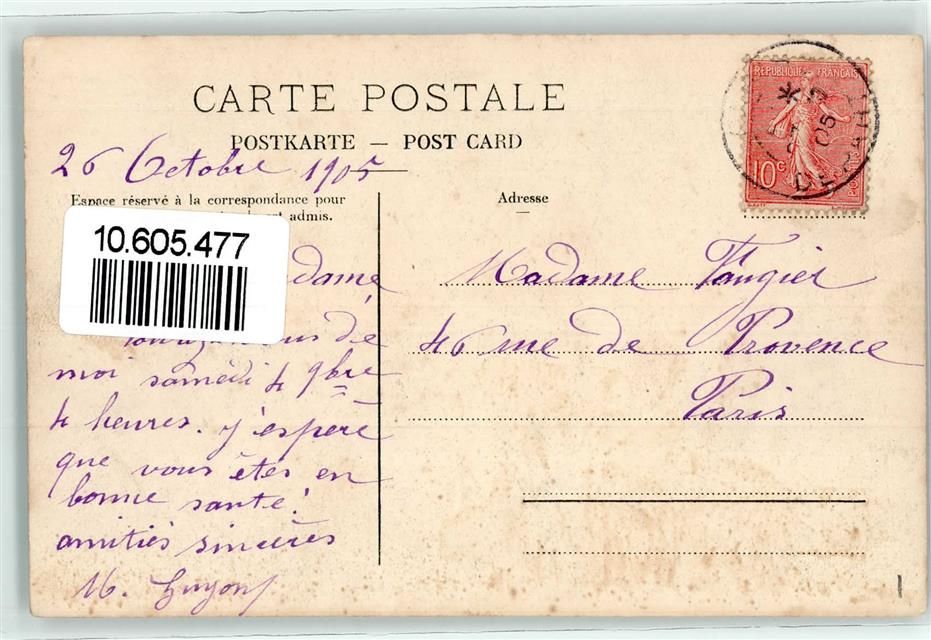 CARTE POSTALE
POSTKARTE — POST CARD
26 Octobre 1905
Espace réservé à la correspondance pour
admis.
Adresse
10.605.477
REPUBLIQUE FRANÇAISE
10c
05
Madame Faugier
46 rue de Provence
Paris
de
moi samedi 4 9bre
4 heures. j'espère
que vous êtes en
bonne santé!
amitiés sincères
M. Guyon